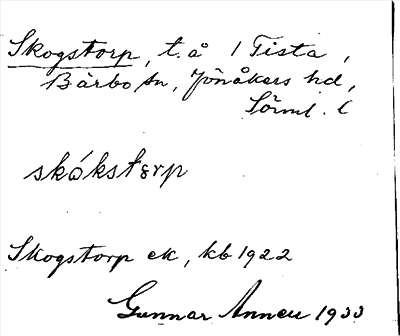 Skogstorp, t. å 1 Tista,
Bärbo sn, Jönåkers hd,
Sörml. l
skókstorp
Skogstorp ek, kb 1922
Gunnar Annell 1933